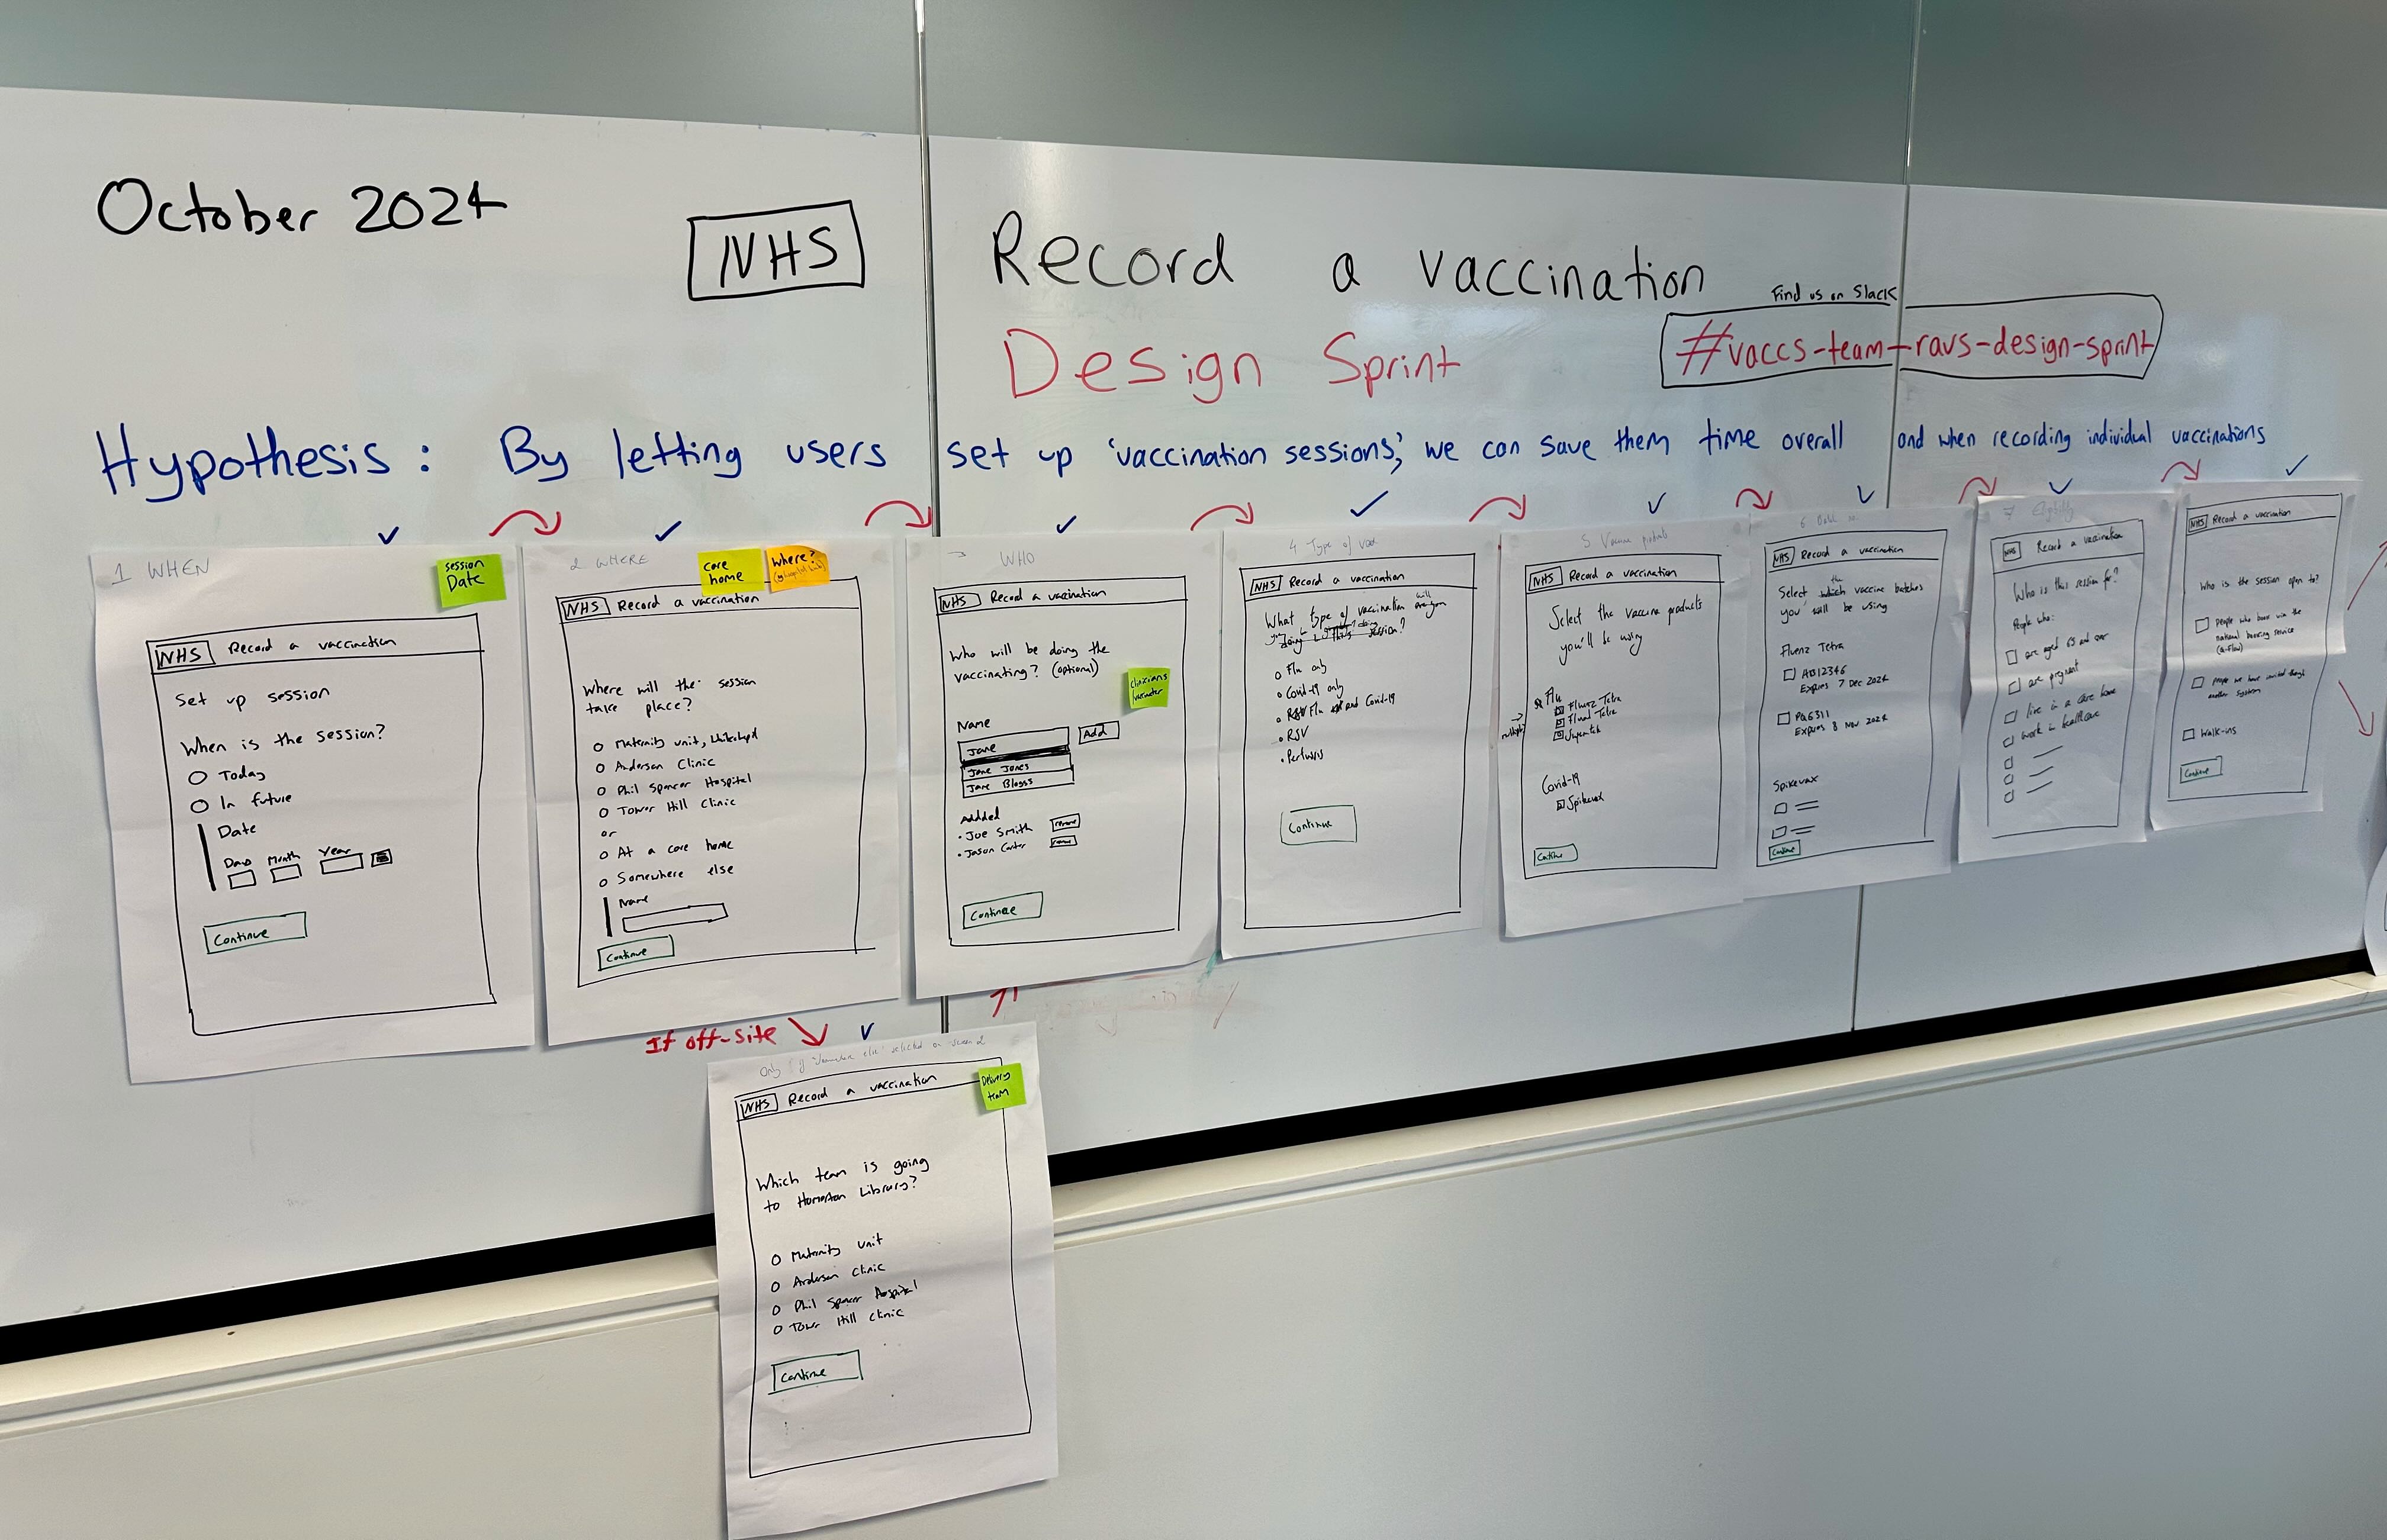 October 2024
NHS
Record a vaccination
Find us on Slack
Design Sprint
#vaccs-team-ravs-design-sprint
Hypothesis: By letting users set up 'vaccination sessions', we can save them time overall and when recording individual vaccinations
1 WHEN
Session Date
NHS Record a vaccination
Set up session
When is the session?
Today
In future
Date
Day Month Year
Continue
2 WHERE
care home
where?
NHS Record a vaccination
Where will the session
take place?
Maternity unit,
Anderson Clinic
Phil Spencer Hospital
Tower Hill Clinic
or
At a care home
Somewhere else
Name
Continue
WHO
NHS Record a vaccination
Who will be doing the
vaccinating? (optional)
Name
Jane
Add
Jane Jones
Jane Bloggs
Addded
Joe Smith
Jason Carter
Continue
4 Type of vacc
NHS Record a vaccination
What type of vaccination will
session?
Flu only
Covid-19 only
Flu and Covid-19
RSV
Pertussis
Continue
5 Vaccine products
NHS Record a vaccination
Select the vaccine products
you'll be using
Flu
Fluenz Tetra
Fluad Tetra
Covid-19
Spikevax
Continue
6 Batch
NHS Record a vaccination
Select which the vaccine batches
you will be using
Fluenz Tetra
AB12346
Expires 7 Dec 2024
PQ6311
Expires 8 Nov 2024
Spikevax
Continue
7 Eligibility
NHS Record a vaccination
Who is this session for?
People who:
are aged 65 and over
are pregnant
live in a care home
work in healthcare
NHS Record a vaccination
Who is the session open to?
People who book via the
national booking service
(Q-Flow)
People we have invited through
another system
Walk-ins
Continue
If off-site
Only if 'somewhere else' selected on screen 2
Delivery team
NHS Record a vaccination
Which team is going
to Homerton Library?
Maternity unit
Anderson Clinic
Phil Spencer Hospital
Tower Hill Clinic
Continue